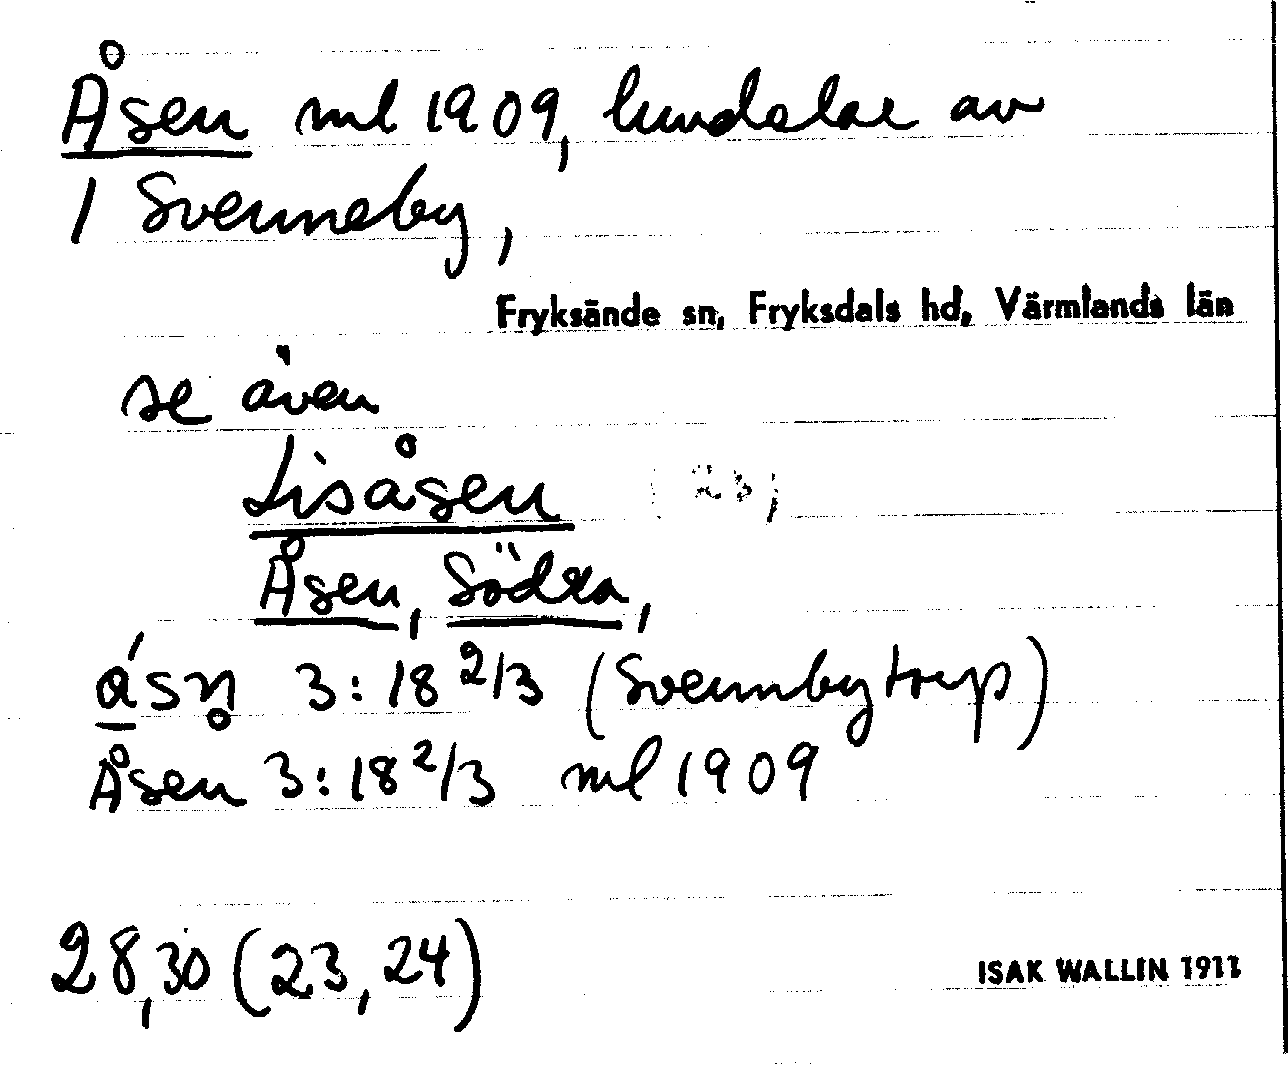 Åsen ml 1909, hmdelar av
1 Svenneby,
Fryksände sn, Fryksdals hd, Värmlands län
se även
Lisåsen
Åsen, Södra,
åsn̥ 3:18 2/3 (Svennbytorp)
Åsen 3:18 2/3 ml 1909
28,30 (23, 24)
ISAK WALLIN 1911